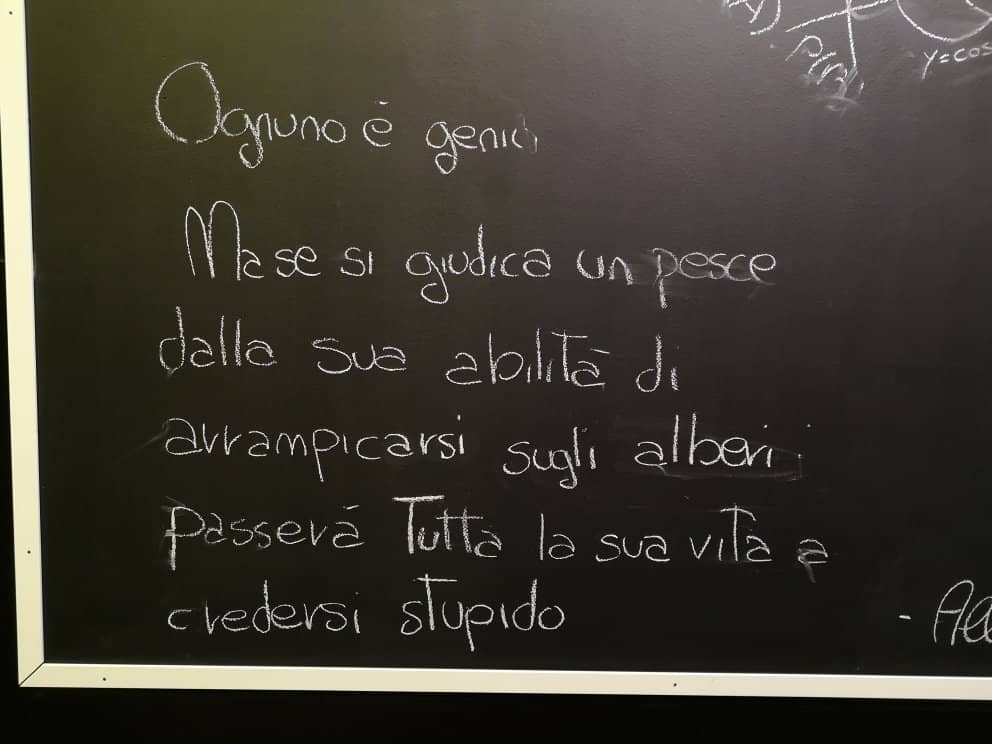 y=cos
Ognuno è genio
Ma se si giudica un pesce
dalla sua abilità di
arrampicarsi sugli alberi
passerà Tutta la sua vita a
credersi stupido
- Al